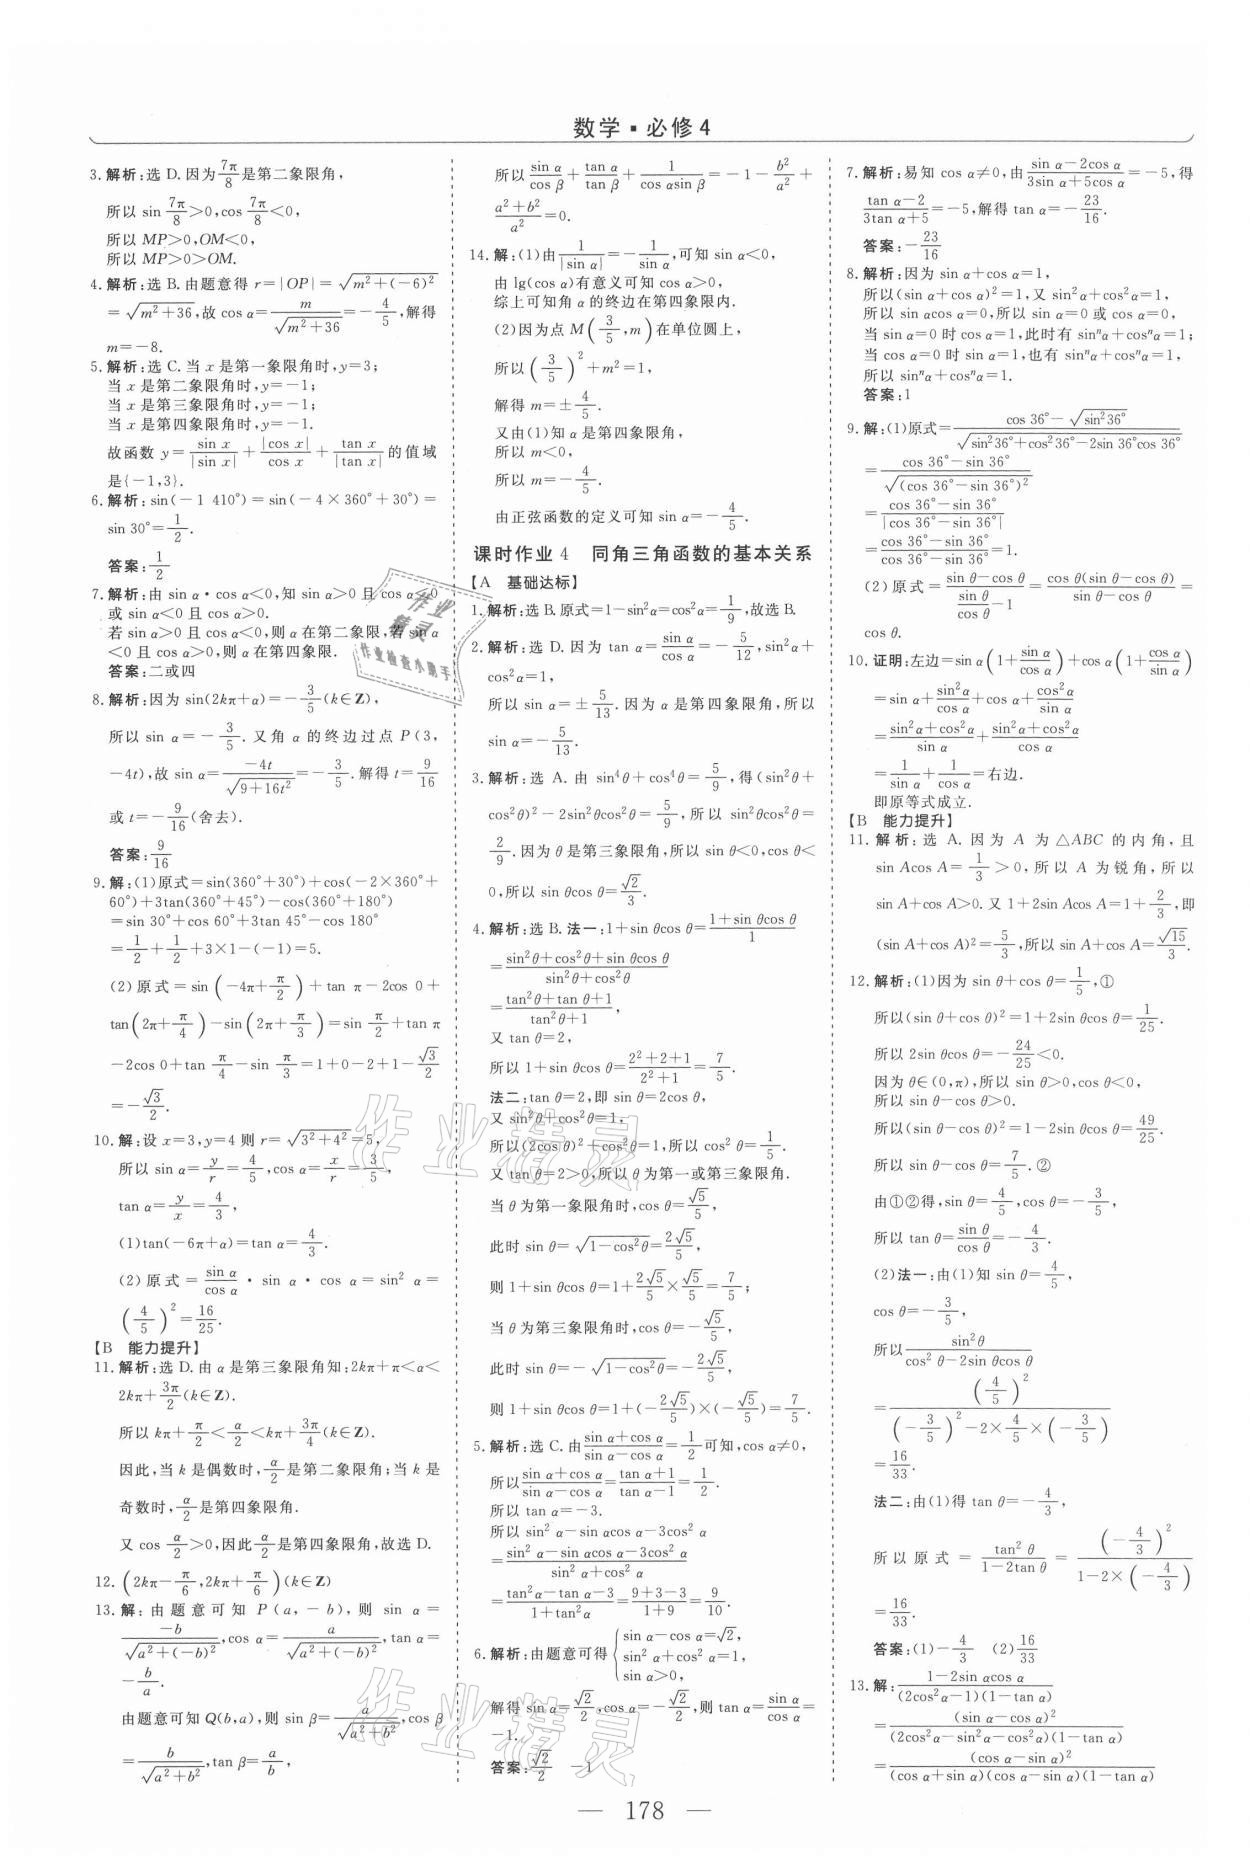 数学·必修4
3.解析:选 D.因为7π/8是第二象限角,
所以 sin 7π/8>0,cos 7π/8<0,
所以 MP>0,OM<0,
所以 MP>0>OM.
4.解析:选 B.由题意得 r=|OP|=√(m²+(-6)²)
=√(m²+36),故 cos α=m/√(m²+36)=-4/5,解得
m=-8.
5.解析:选 C.当 x 是第一象限角时,y=3;
当 x 是第二象限角时,y=-1;
当 x 是第三象限角时,y=-1;
当 x 是第四象限角时,y=-1.
故函数 y=sin x/|sin x|+|cos x|/cos x+tan x/|tan x|的值域
是{-1,3}.
6.解析:sin(-1 410°)=sin(-4×360°+30°)=
sin 30°=1/2.
答案:1/2
7.解析:由 sin α·cos α<0,知 sin α>0 且 cos α<0
或 sin α<0 且 cos α>0.
若 sin α>0 且 cos α<0,则 α 在第二象限,若 sin α
<0 且 cos α>0,则 α 在第四象限.
答案:二或四
8.解析:因为 sin(2kπ+α)=-3/5(k∈Z),
所以 sin α=-3/5.又角 α 的终边过点 P(3,
-4t),故 sin α=-4t/√(9+16t²)=-3/5.解得 t=9/16
或 t=-9/16(舍去).
答案:9/16
9.解:(1)原式=sin(360°+30°)+cos(-2×360°+
60°)+3tan(360°+45°)-cos(360°+180°)
=sin 30°+cos 60°+3tan 45°-cos 180°
=1/2+1/2+3×1-(-1)=5.
(2)原式=sin(-4π+π/2)+tan π-2cos 0+
tan(2π+π/4)-sin(2π+π/3)=sin π/2+tan π
-2cos 0+tan π/4-sin π/3=1+0-2+1-√3/2
=-√3/2.
10.解:设 x=3,y=4 则 r=√(3²+4²)=5,
所以 sin α=y/r=4/5,cos α=x/r=3/5,
tan α=y/x=4/3,
(1)tan(-6π+α)=tan α=4/3.
(2)原式=sin α/cos α·sin α·cos α=sin² α=
(4/5)²=16/25.
【B 能力提升】
11.解析:选 D.由 α 是第三象限角知:2kπ+π<α<
2kπ+3π/2(k∈Z).
所以 kπ+π/2<α/2<kπ+3π/4(k∈Z).
因此,当 k 是偶数时,α/2是第二象限角;当 k 是
奇数时,α/2是第四象限角.
又 cos α/2>0,因此α/2是第四象限角,故选 D.
12.(2kπ-π/6,2kπ+π/6)(k∈Z)
13.解:由题意可知 P(a,-b),则 sin α=
-b/√(a²+(-b)²),cos α=a/√(a²+(-b)²),tan α=
-b/a.
由题意可知 Q(b,a),则 sin β=a/√(a²+b²),cos β
=b/√(a²+b²),tan β=a/b,
所以 sin α/cos β+tan α/tan β+1/(cos αsin β)=-1-b²/a²+
(a²+b²)/a²=0.
14.解:(1)由1/|sin α|=-1/sin α,可知 sin α<0,
由 lg(cos α)有意义可知 cos α>0,
综上可知角 α 的终边在第四象限内.
(2)因为点 M(3/5,m)在单位圆上,
所以(3/5)²+m²=1,
解得 m=±4/5.
又由(1)知 α 是第四象限角,
所以 m<0,
所以 m=-4/5.
由正弦函数的定义可知 sin α=-4/5.
课时作业 4 同角三角函数的基本关系
【A 基础达标】
1.解析:选 B.原式=1-sin²α=cos²α=1/9,故选 B.
2.解析:选 D.因为 tan α=sin α/cos α=-5/12,sin²α+
cos²α=1,
所以 sin α=±5/13.因为 α 是第四象限角,所以
sin α=-5/13.
3.解析:选 A.由 sin⁴θ+cos⁴θ=5/9,得(sin²θ+
cos²θ)²-2sin²θcos²θ=5/9,所以 sin²θcos²θ=
2/9.因为 θ 是第三象限角,所以 sin θ<0,cos θ<
0,所以 sin θcos θ=√2/3.
4.解析:选 B.法一:1+sin θcos θ=(1+sin θcos θ)/1
=(sin²θ+cos²θ+sin θcos θ)/(sin²θ+cos²θ)
=(tan²θ+tan θ+1)/(tan²θ+1),
又 tan θ=2,
所以 1+sin θcos θ=(2²+2+1)/(2²+1)=7/5.
法二:tan θ=2,即 sin θ=2cos θ,
又 sin²θ+cos²θ=1,
所以(2cos θ)²+cos²θ=1,所以 cos² θ=1/5.
又 tan θ=2>0,所以 θ 为第一或第三象限角.
当 θ 为第一象限角时,cos θ=√5/5,
此时 sin θ=√(1-cos²θ)=2√5/5,
则 1+sin θcos θ=1+2√5/5×√5/5=7/5;
当 θ 为第三象限角时,cos θ=-√5/5,
此时 sin θ=-√(1-cos²θ)=-2√5/5,
则 1+sin θcos θ=1+(-2√5/5)×(-√5/5)=7/5.
5.解析:选 C.由(sin α+cos α)/(sin α-cos α)=1/2可知,cos α≠0,
所以(sin α+cos α)/(sin α-cos α)=(tan α+1)/(tan α-1)=1/2.
所以 tan α=-3.
所以 sin² α-sin αcos α-3cos² α
=(sin² α-sin αcos α-3cos² α)/(sin²α+cos²α)
=(tan²α-tan α-3)/(1+tan²α)=(9+3-3)/(1+9)=9/10.
6.解析:由题意可得{sin α-cos α=√2,
sin² α+cos² α=1,
sin α>0,
解得 sin α=√2/2,cos α=-√2/2,则 tan α=sin α/cos α=
-1.
答案:√2/2 -1
7.解析:易知 cos α≠0,由(sin α-2cos α)/(3sin α+5cos α)=-5,得
(tan α-2)/(3tan α+5)=-5,解得 tan α=-23/16.
答案:-23/16
8.解析:因为 sin α+cos α=1,
所以(sin α+cos α)²=1,又 sin²α+cos²α=1,
所以 sin αcos α=0,所以 sin α=0 或 cos α=0,
当 sin α=0 时 cos α=1,此时有 sinⁿα+cosⁿα=1;
当 cos α=0 时 sin α=1,也有 sinⁿα+cosⁿα=1,
所以 sinⁿα+cosⁿα=1.
答案:1
9.解:(1)原式=(cos 36°-√(sin²36°))/√(sin²36°+cos²36°-2sin 36°cos 36°)
=(cos 36°-sin 36°)/√((cos 36°-sin 36°)²)
=(cos 36°-sin 36°)/|cos 36°-sin 36°|
=(cos 36°-sin 36°)/(cos 36°-sin 36°)=1.
(2)原式=(sin θ-cos θ)/(sin θ/cos θ-1)=cos θ(sin θ-cos θ)/(sin θ-cos θ)=
cos θ.
10.证明:左边=sin α(1+sin α/cos α)+cos α(1+cos α/sin α)
=sin α+sin²α/cos α+cos α+cos²α/sin α
=(sin²α+cos²α)/sin α+(sin²α+cos²α)/cos α
=1/sin α+1/cos α=右边.
即原等式成立.
【B 能力提升】
11.解析:选 A.因为 A 为△ABC 的内角,且
sin Acos A=1/3>0,所以 A 为锐角,所以
sin A+cos A>0.又 1+2sin Acos A=1+2/3,即
(sin A+cos A)²=5/3,所以 sin A+cos A=√15/3.
12.解析:(1)因为 sin θ+cos θ=1/5,①
所以(sin θ+cos θ)²=1+2sin θcos θ=1/25.
所以 2sin θcos θ=-24/25<0.
因为 θ∈(0,π),所以 sin θ>0,cos θ<0,
所以 sin θ-cos θ>0.
所以(sin θ-cos θ)²=1-2sin θcos θ=49/25.
所以 sin θ-cos θ=7/5.②
由①②得,sin θ=4/5,cos θ=-3/5,
所以 tan θ=sin θ/cos θ=-4/3.
(2)法一:由(1)知 sin θ=4/5,
cos θ=-3/5,
所以sin²θ/(cos² θ-2sin θcos θ)
=(4/5)²/((-3/5)²-2×4/5×(-3/5))
=16/33.
法二:由(1)得 tan θ=-4/3,
所以原式=tan² θ/(1-2tan θ)=(-4/3)²/(1-2×(-4/3))
=16/33.
答案:(1)-4/3 (2)16/33
13.解:(1-2sin αcos α)/((2cos²α-1)(1-tan α))
=(sin α-cos α)²/((2cos²α-sin²α-cos²α)(1-tan α))
=(cos α-sin α)²/((cos α+sin α)(cos α-sin α)(1-tan α))
— 178 —
作业
精灵
作业检查小助手
作业精灵
作业精灵